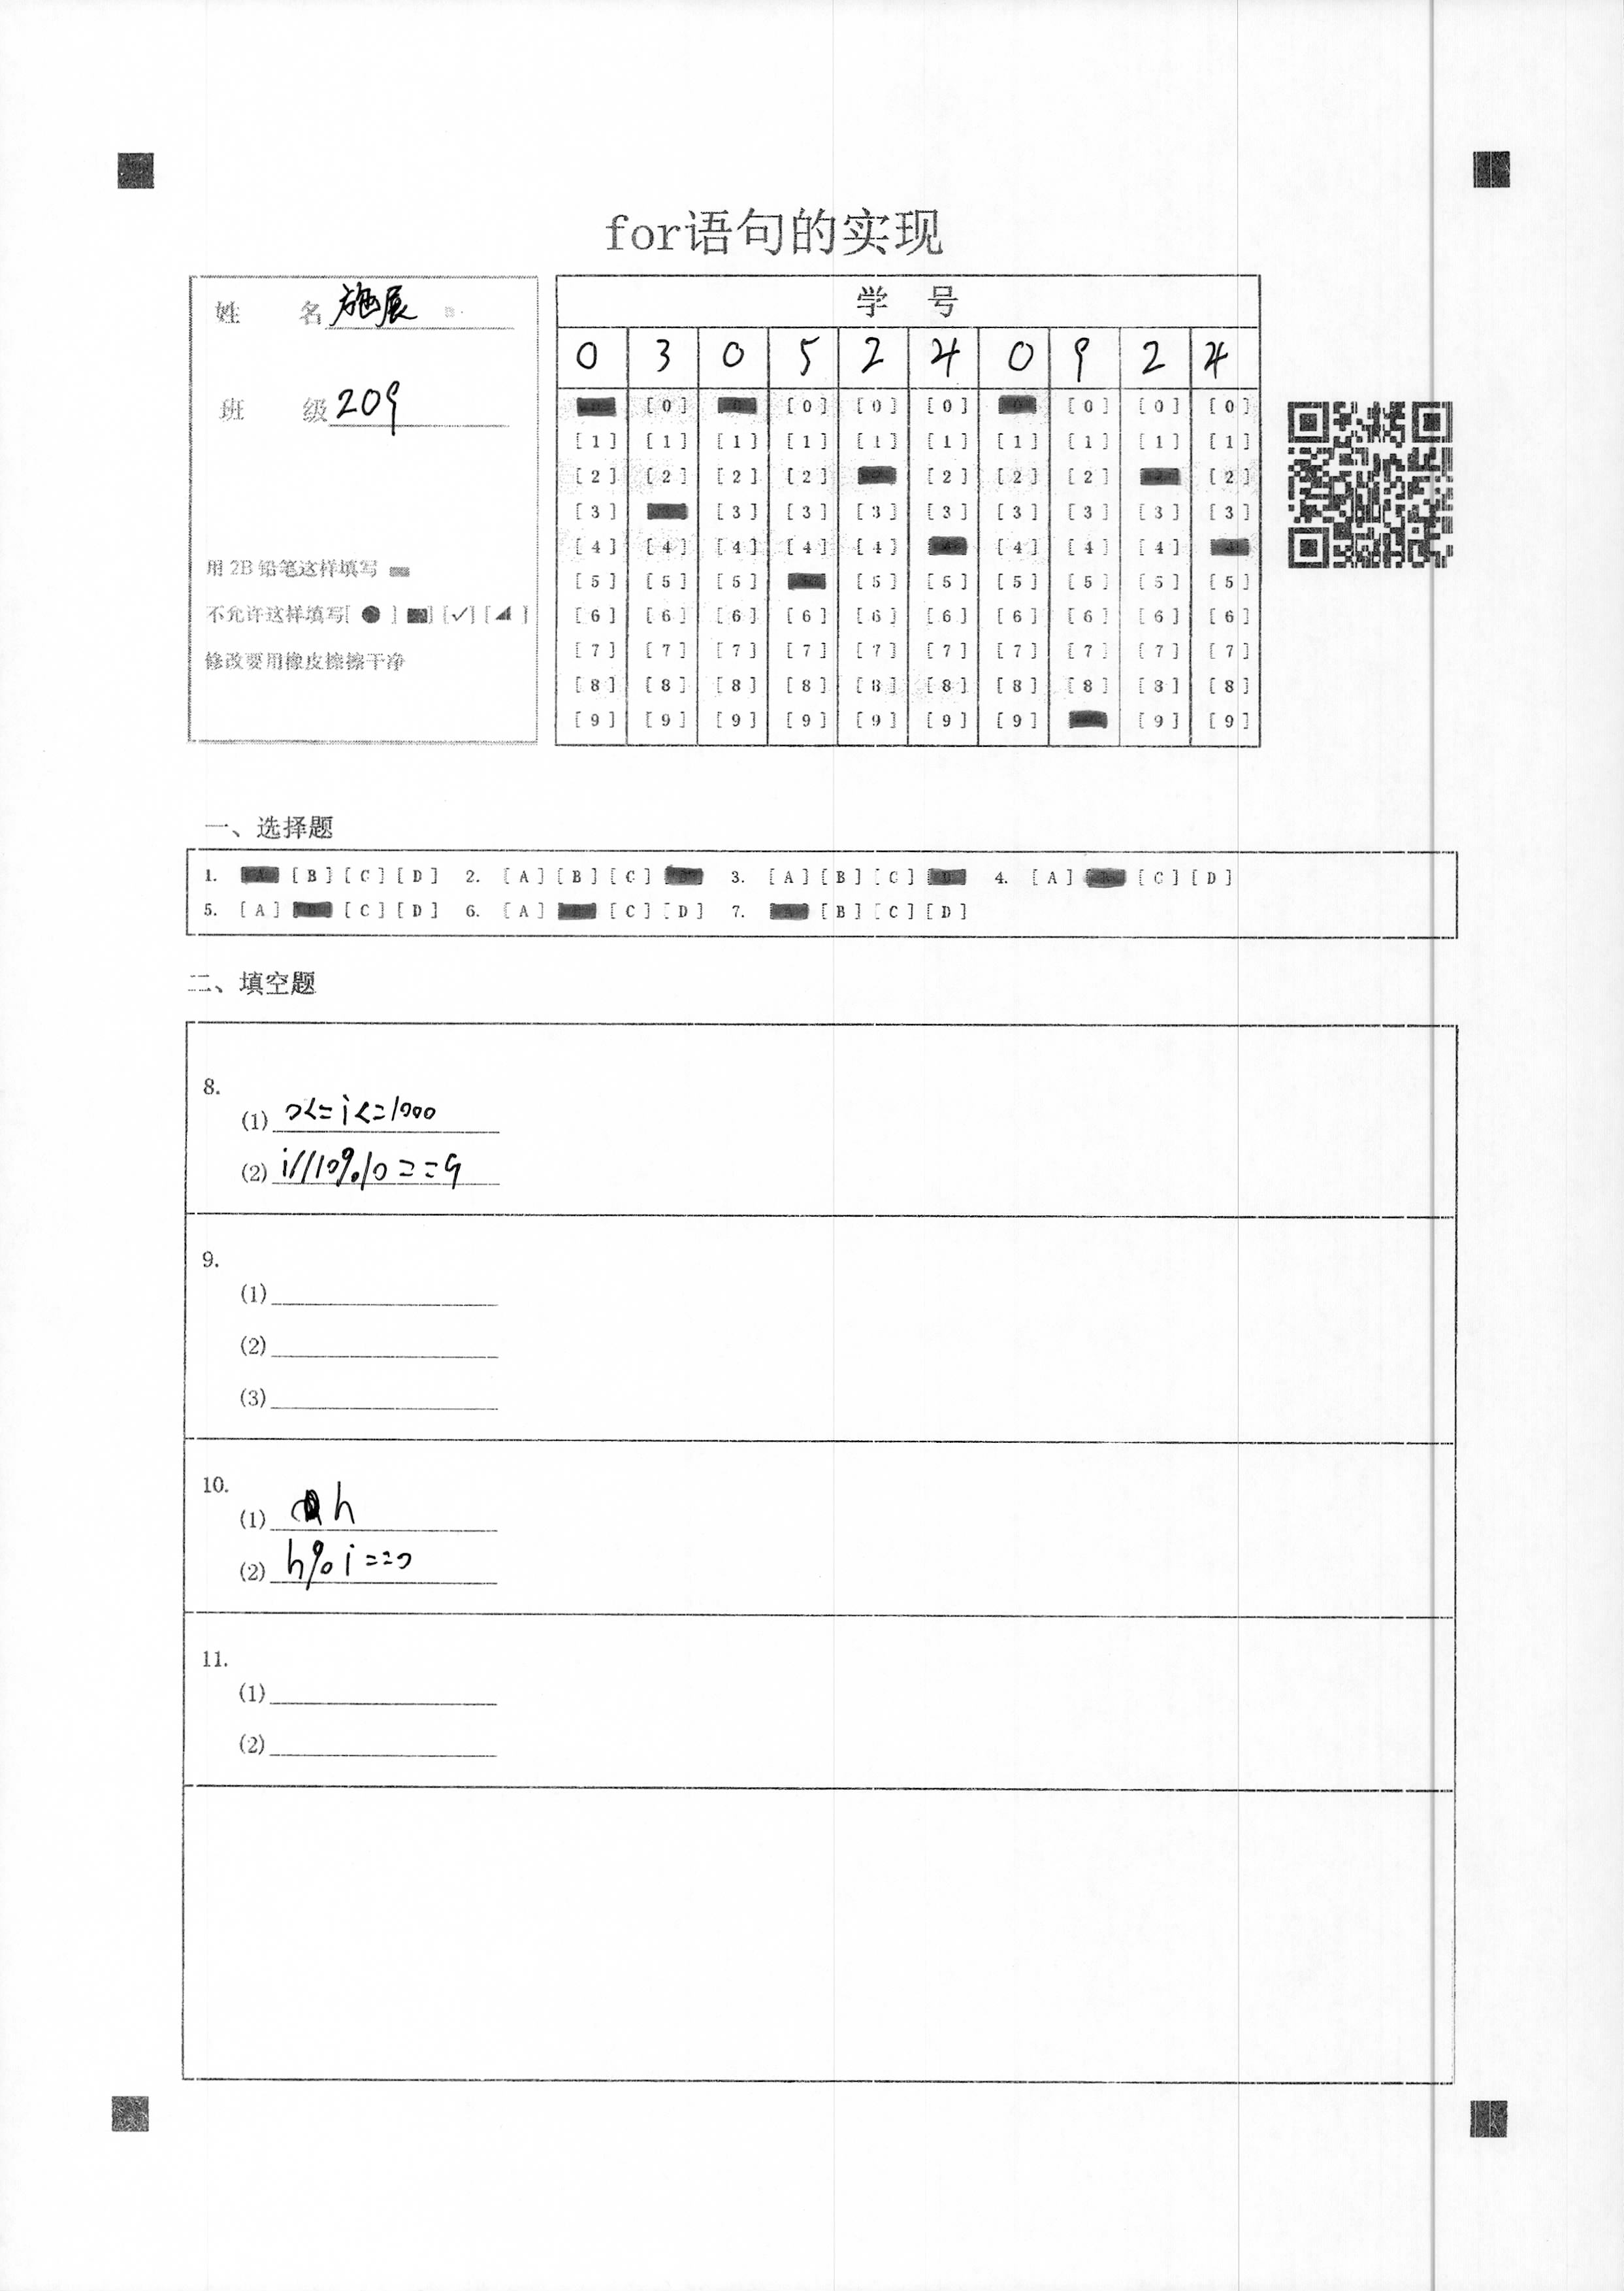 for语句的实现
姓 名 施展
班 级 209
用 2B 铅笔这样填写
不允许这样填写[ ● ] [ ■ ] [✓] [ ◢ ]
修改要用橡皮擦擦干净
学 号
0 3 0 5 2 4 0 9 2 4
[0] [0] [0] [0] [0] [0] [0]
[1] [1] [1] [1] [1] [1] [1] [1] [1] [1]
[2] [2] [2] [2] [2] [2] [2] [2]
[3] [3] [3] [3] [3] [3] [3] [3] [3]
[4] [4] [4] [4] [4] [4] [4] [4]
[5] [5] [5] [5] [5] [5] [5] [5] [5]
[6] [6] [6] [6] [6] [6] [6] [6] [6] [6]
[7] [7] [7] [7] [7] [7] [7] [7] [7] [7]
[8] [8] [8] [8] [8] [8] [8] [8] [8] [8]
[9] [9] [9] [9] [9] [9] [9] [9] [9]
一、选择题
1. [A] [B] [C] [D] 2. [A] [B] [C] [D] 3. [A] [B] [C] [D] 4. [A] [B] [C] [D]
5. [A] [B] [C] [D] 6. [A] [B] [C] [D] 7. [A] [B] [C] [D]
二、填空题
8.
(1) 0<=i<=1000
(2) i//10%10==9
9.
(1)
(2)
(3)
10.
(1) n
(2) n%i==0
11.
(1)
(2)